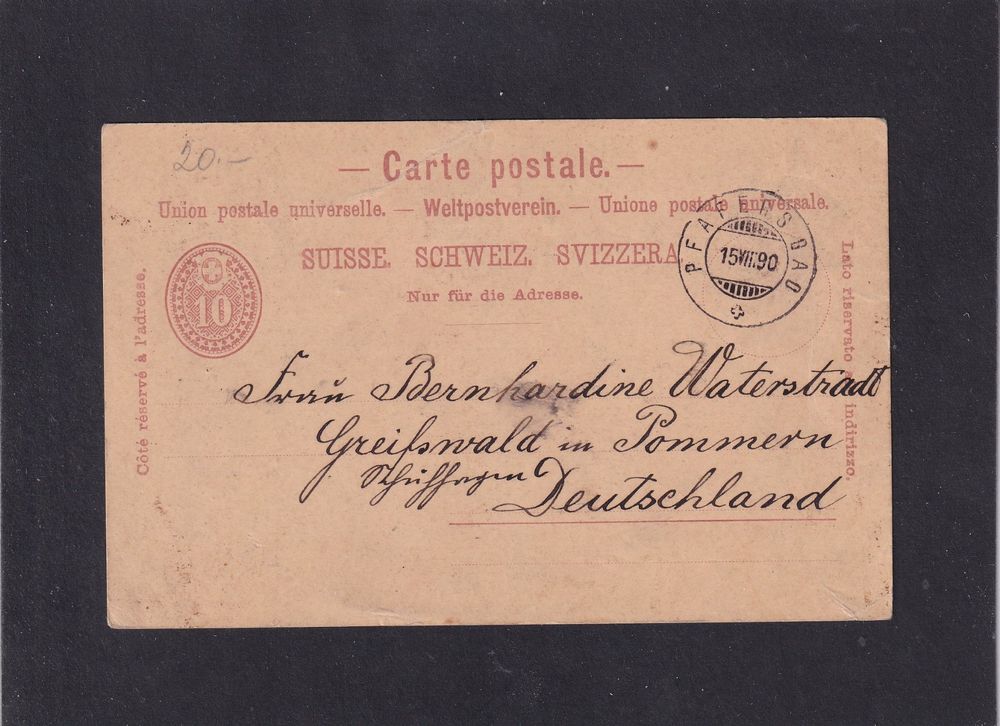 20.—
— Carte postale. —
Union postale universelle. — Weltpostverein. — Unione postale universale.
SUISSE. SCHWEIZ. SVIZZERA
Nur für die Adresse.
10
PFÆFERS BAD
15 VIII 90
Côté réservé à l'adresse.
Lato riservato all' indirizzo.
Frau Bernhardine Waterstradt
Greifswald in Pommern
Schuhhagen
Deutschland